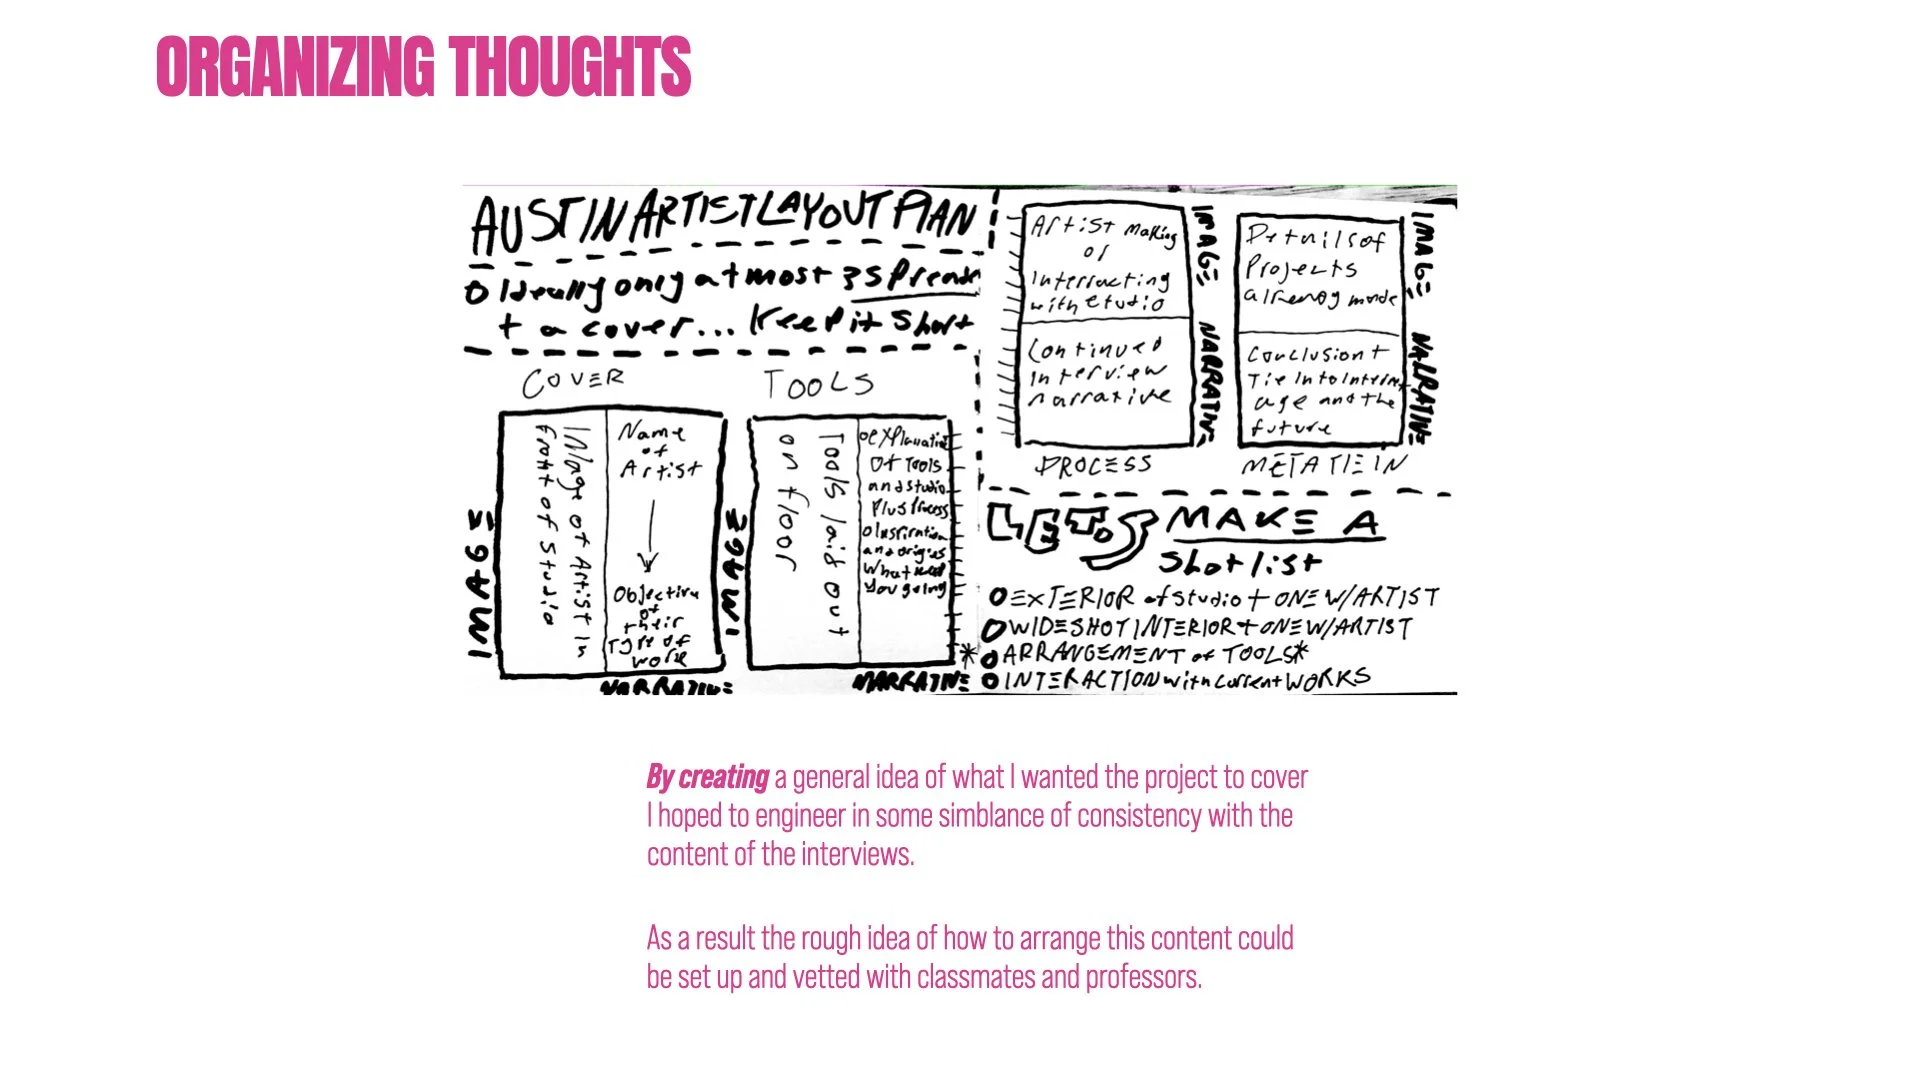 ORGANIZING THOUGHTS
AUSTIN ARTIST LAYOUT PLAN
O Ideally only at most 3 spreads
+ a cover... Keep it short
COVER
IMAGE
Image of Artist in
front of studio
Name
of
Artist
Objective
of
their
Type of
work
NARRATIVE
TOOLS
IMAGE
Tools laid out
on floor
O Explanation
Of Tools
and studio
Plus Process
O Inspiration
and origins
What keeps
You going
NARRATIVE
Artist Making
or
Interacting
with studio
IMAGE
Continued
Interview
narrative
NARRATIVE
PROCESS
Details of
Projects
already made
IMAGE
Conclusion +
Tie in to internet
age and the
future
NARRATIVE
META TIE IN
LETS MAKE A
Shot list
O EXTERIOR of studio + ONE W/ARTIST
O WIDESHOT INTERIOR + ONE W/ARTIST
* O ARRANGEMENT of TOOLS*
O INTERACTION with current WORKS
By creating a general idea of what I wanted the project to cover
I hoped to engineer in some simblance of consistency with the
content of the interviews.
As a result the rough idea of how to arrange this content could
be set up and vetted with classmates and professors.